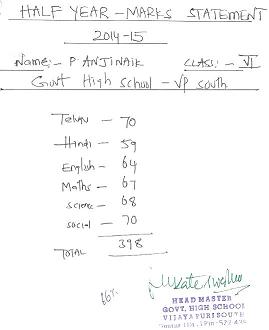 HALF YEAR - MARKS STATEMENT
2014-15
Name:- P ANJINAIK CLASS:- VI
Govt High school - VP south
Telugu - 70
Hindi - 59
English - 64
Maths - 67
Science - 68
Social - 70
TOTAL 398
66%
HEAD MASTER
GOVT. HIGH SCHOOL
VIJAYAPURI SOUTH